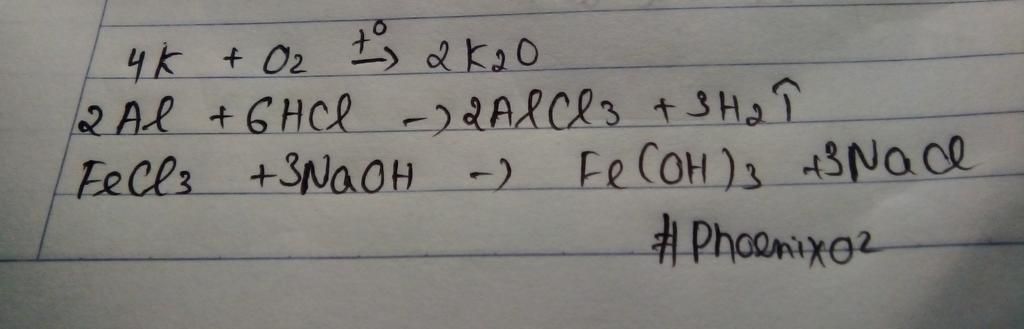 4K + O2 t°→ 2K2O
2Al + 6HCl → 2AlCl3 + 3H2↑
FeCl3 + 3NaOH → Fe(OH)3 + 3NaCl
#Phoenix02